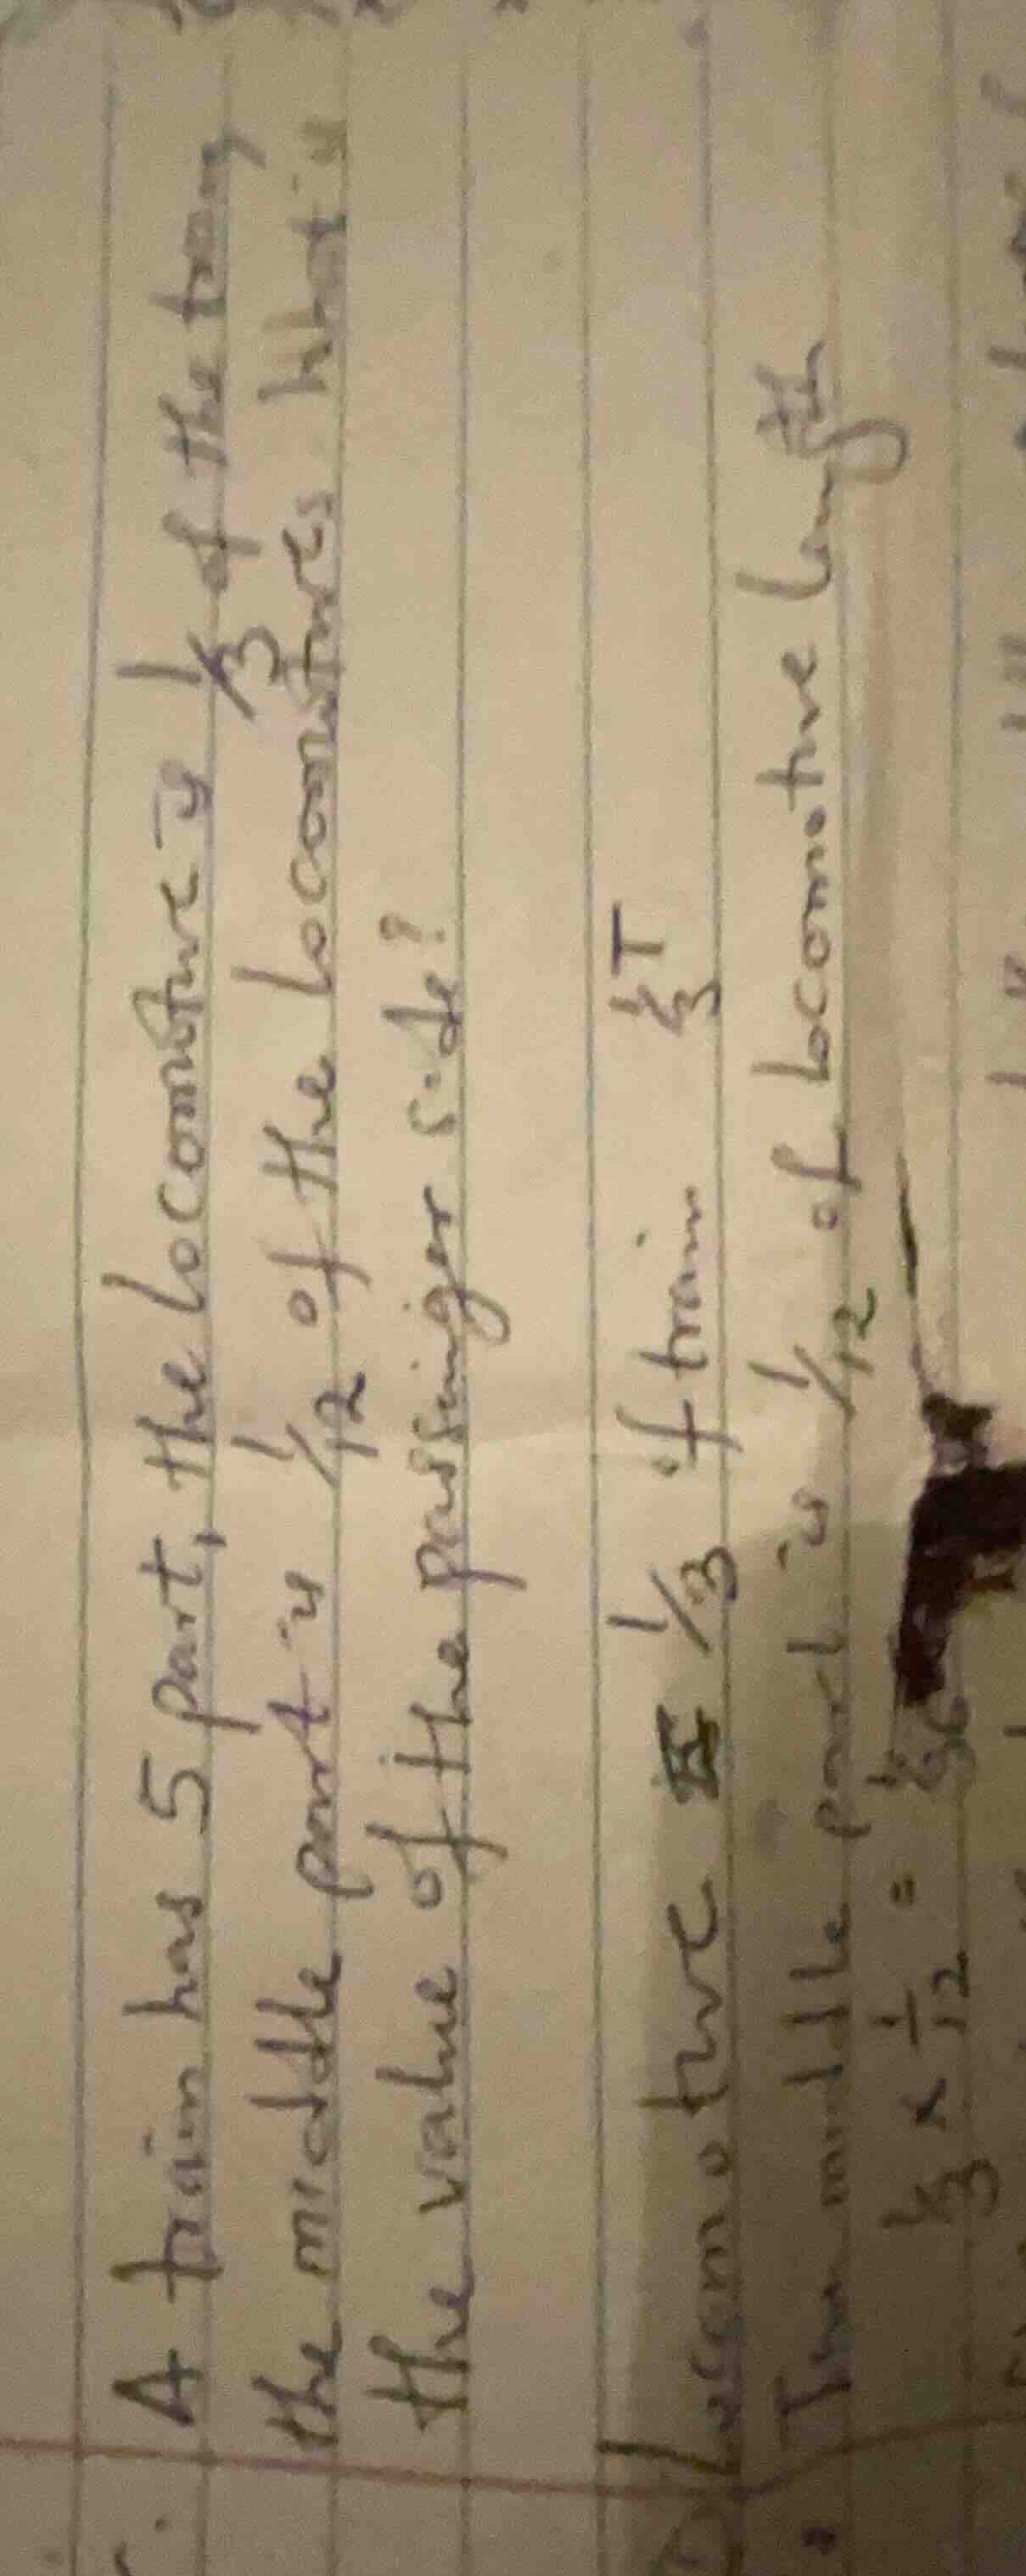 A train has 5 part, the locomotive is 1/3 of the
the middle part is 1/12 of the locomotives what is
the value of the passinger side?
Locomotive 1/3 of train 1/3 T
The middle part is 1/12 of locomotive length
1/3 x 1/12 = 1/36